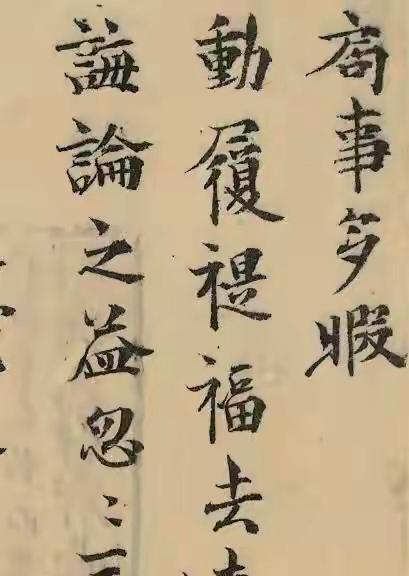 商事多暇
動履禔福去
講論之益忽〻